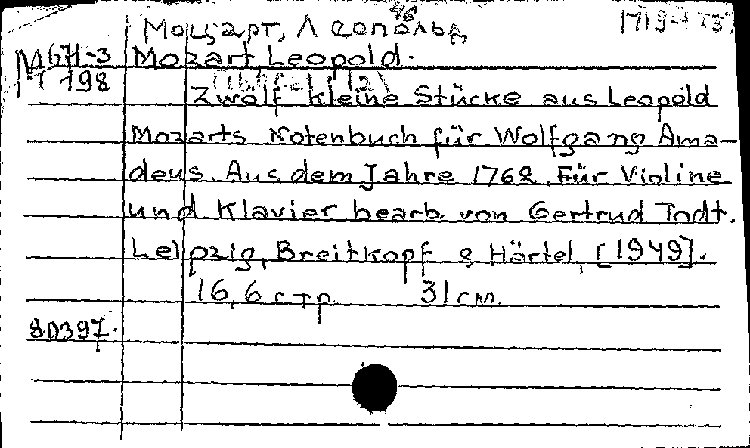 Моцарт, Леопольд
М671-3 Mozart Leopold.
198
Zwölf kleine Stücke aus Leopold
Mozarts Notenbuch für Wolfgang Ama-
deus. Aus dem Jahre 1762. Für Violine
und Klavier bearb. von Gertrud Todt.
Leipzig, Breitkopf & Härtel, [1949].
16, 6 стр. 31 см.
80397.